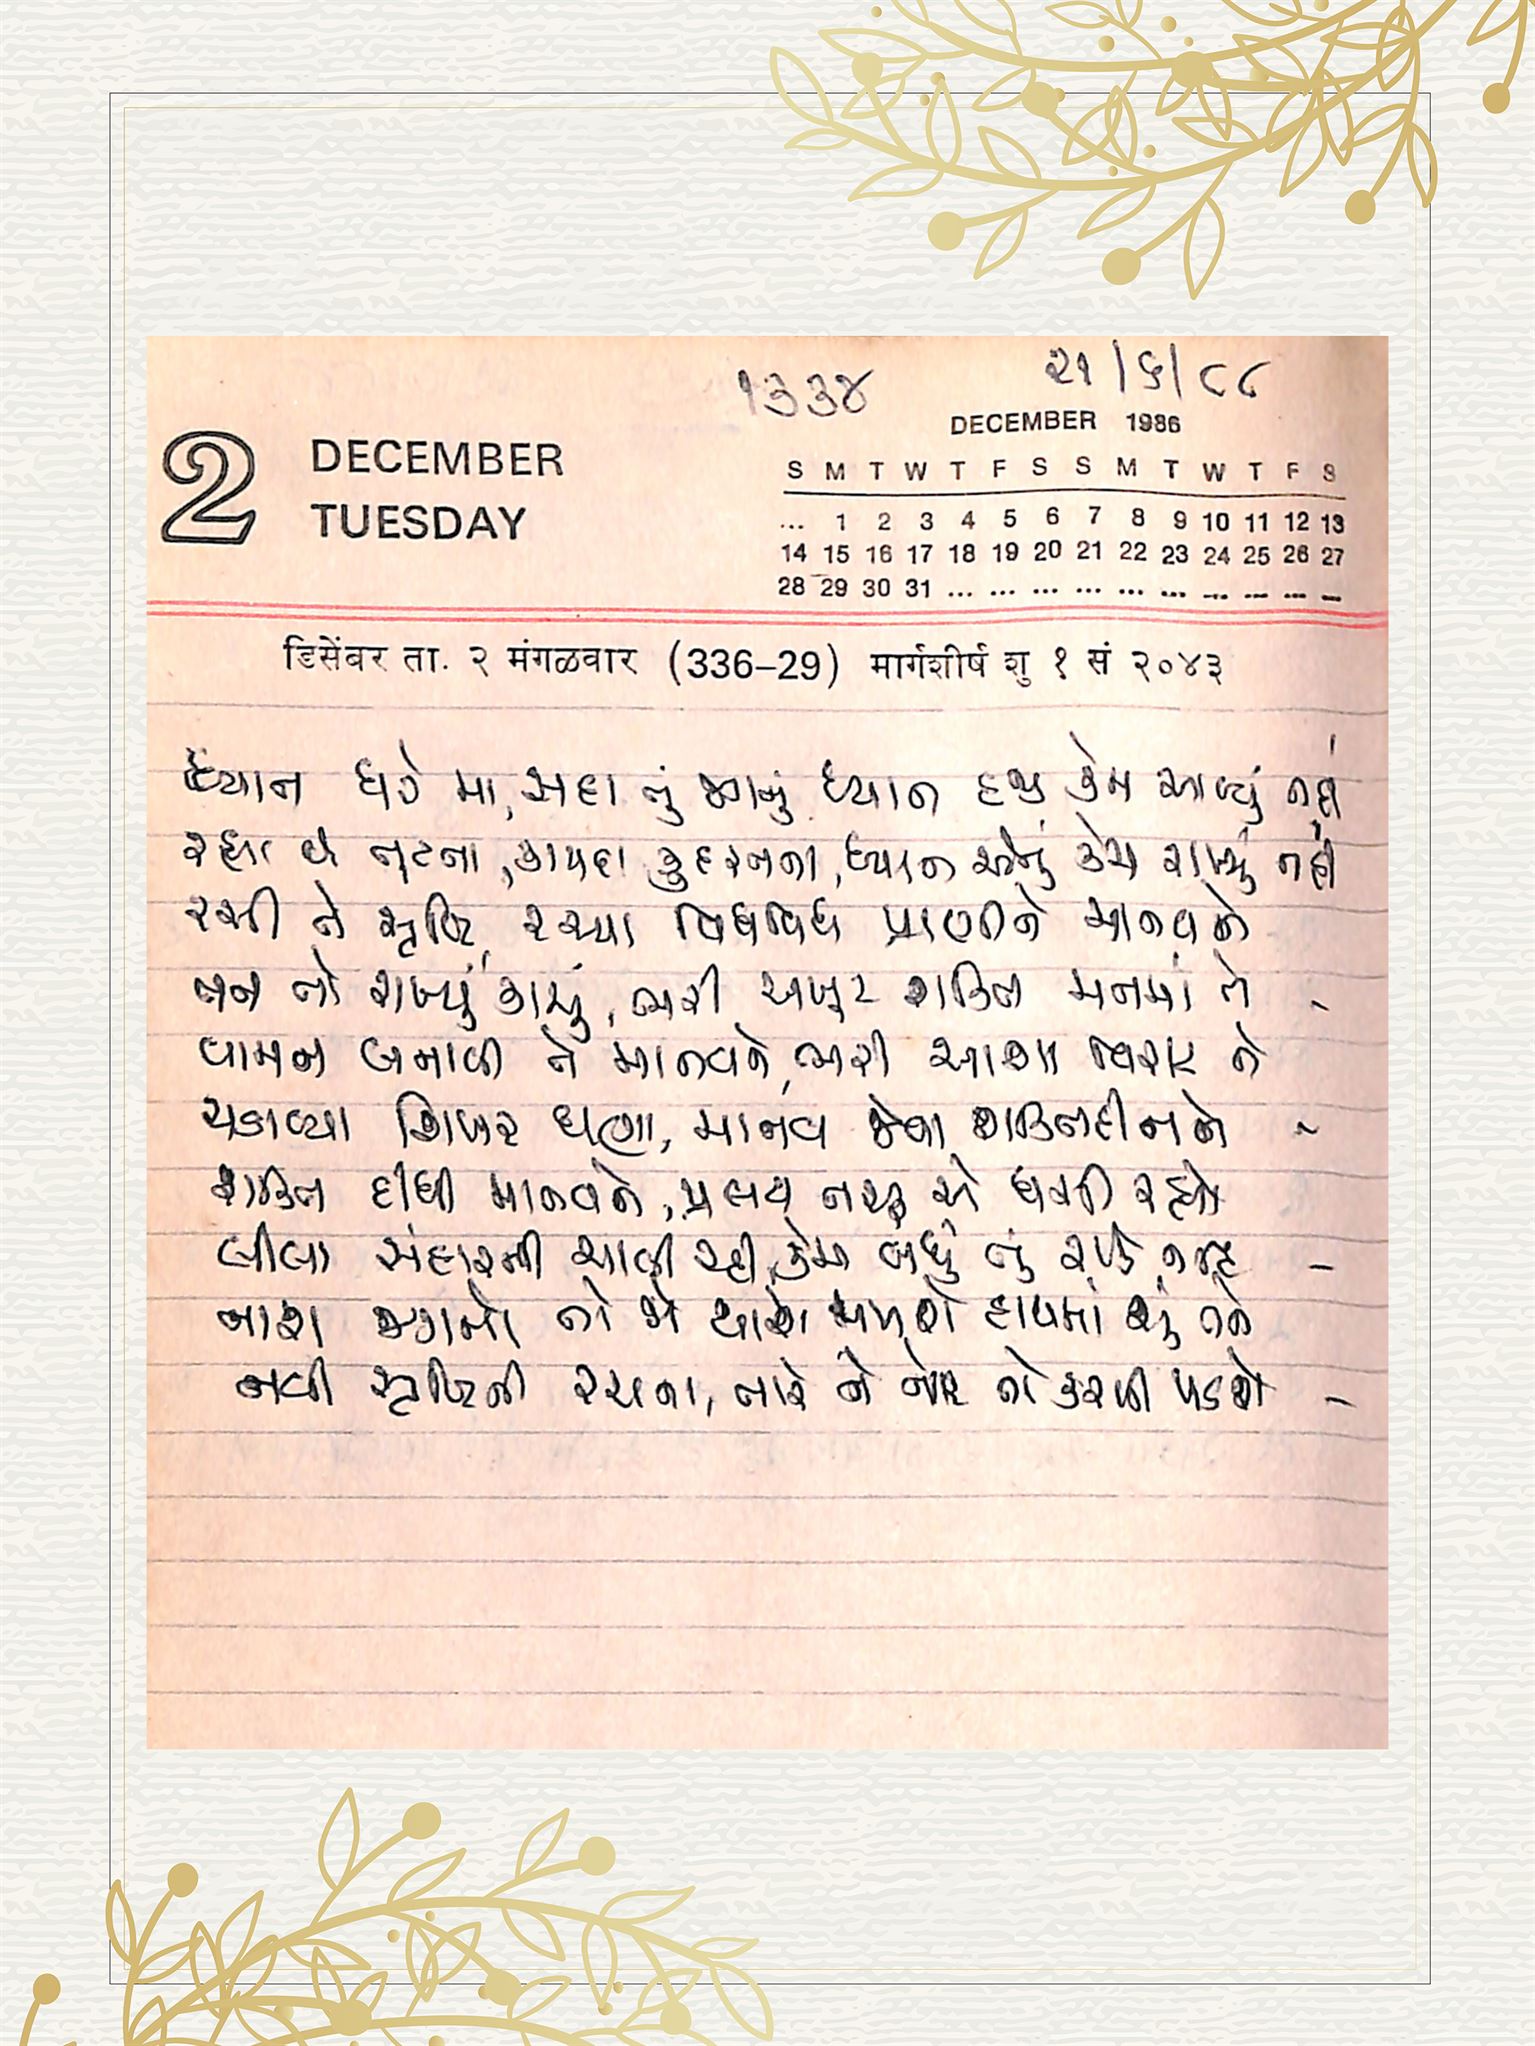 ૧૩૩૪
૨૧/૬/૮૮
2 DECEMBER
TUESDAY
DECEMBER 1986
S M T W T F S S M T W T F S
... 1 2 3 4 5 6 7 8 9 10 11 12 13
14 15 16 17 18 19 20 21 22 23 24 25 26 27
28 29 30 31 ... ... ... ... ... ... ... ... ... ...
डिसेंबर ता. २ मंगळवार (336–29) मार्गशीर्ष शु १ सं २०४३
ધ્યાન ધરે મા, સદા તું જગનું ધ્યાન હજી કેમ આવ્યું નહીં
રહ્યા છે તૂટતા, કાયદા કુદરતના, ધ્યાન એનું કેમ રાખ્યું નહીં
રચી તે સૃષ્ટિ, રચ્યા વિધવિધ પ્રાણીને માનવને
તન તો રાખ્યું કાચું, ભરી અખૂટ શક્તિ મનમાં તે -
વામન બનાવી તે માનવને, ભરી આશા વિરાટ તે
ચડાવ્યા શિખર ઘણા, માનવ જેવા શક્તિહીનને -
શક્તિ દીધી માનવને, પ્રલય નજરૂ એ ધરતી રહ્યો
લીલા સંહારની ચાલી રહી, કેમ બધું તું રોકે નહિ -
નાશ જગતનો તો જો થાશે આવશે હાથમાં શું તને
નવી સૃષ્ટિની રચના, તારે ને તારે તો કરવી પડશે -